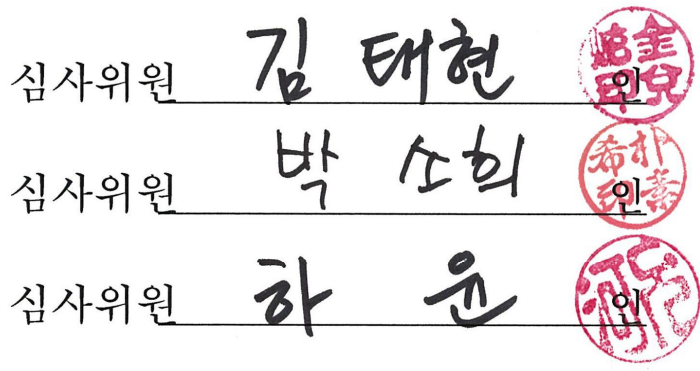 심사위원 김 태현 인
심사위원 박 소희 인
심사위원 하 윤 인